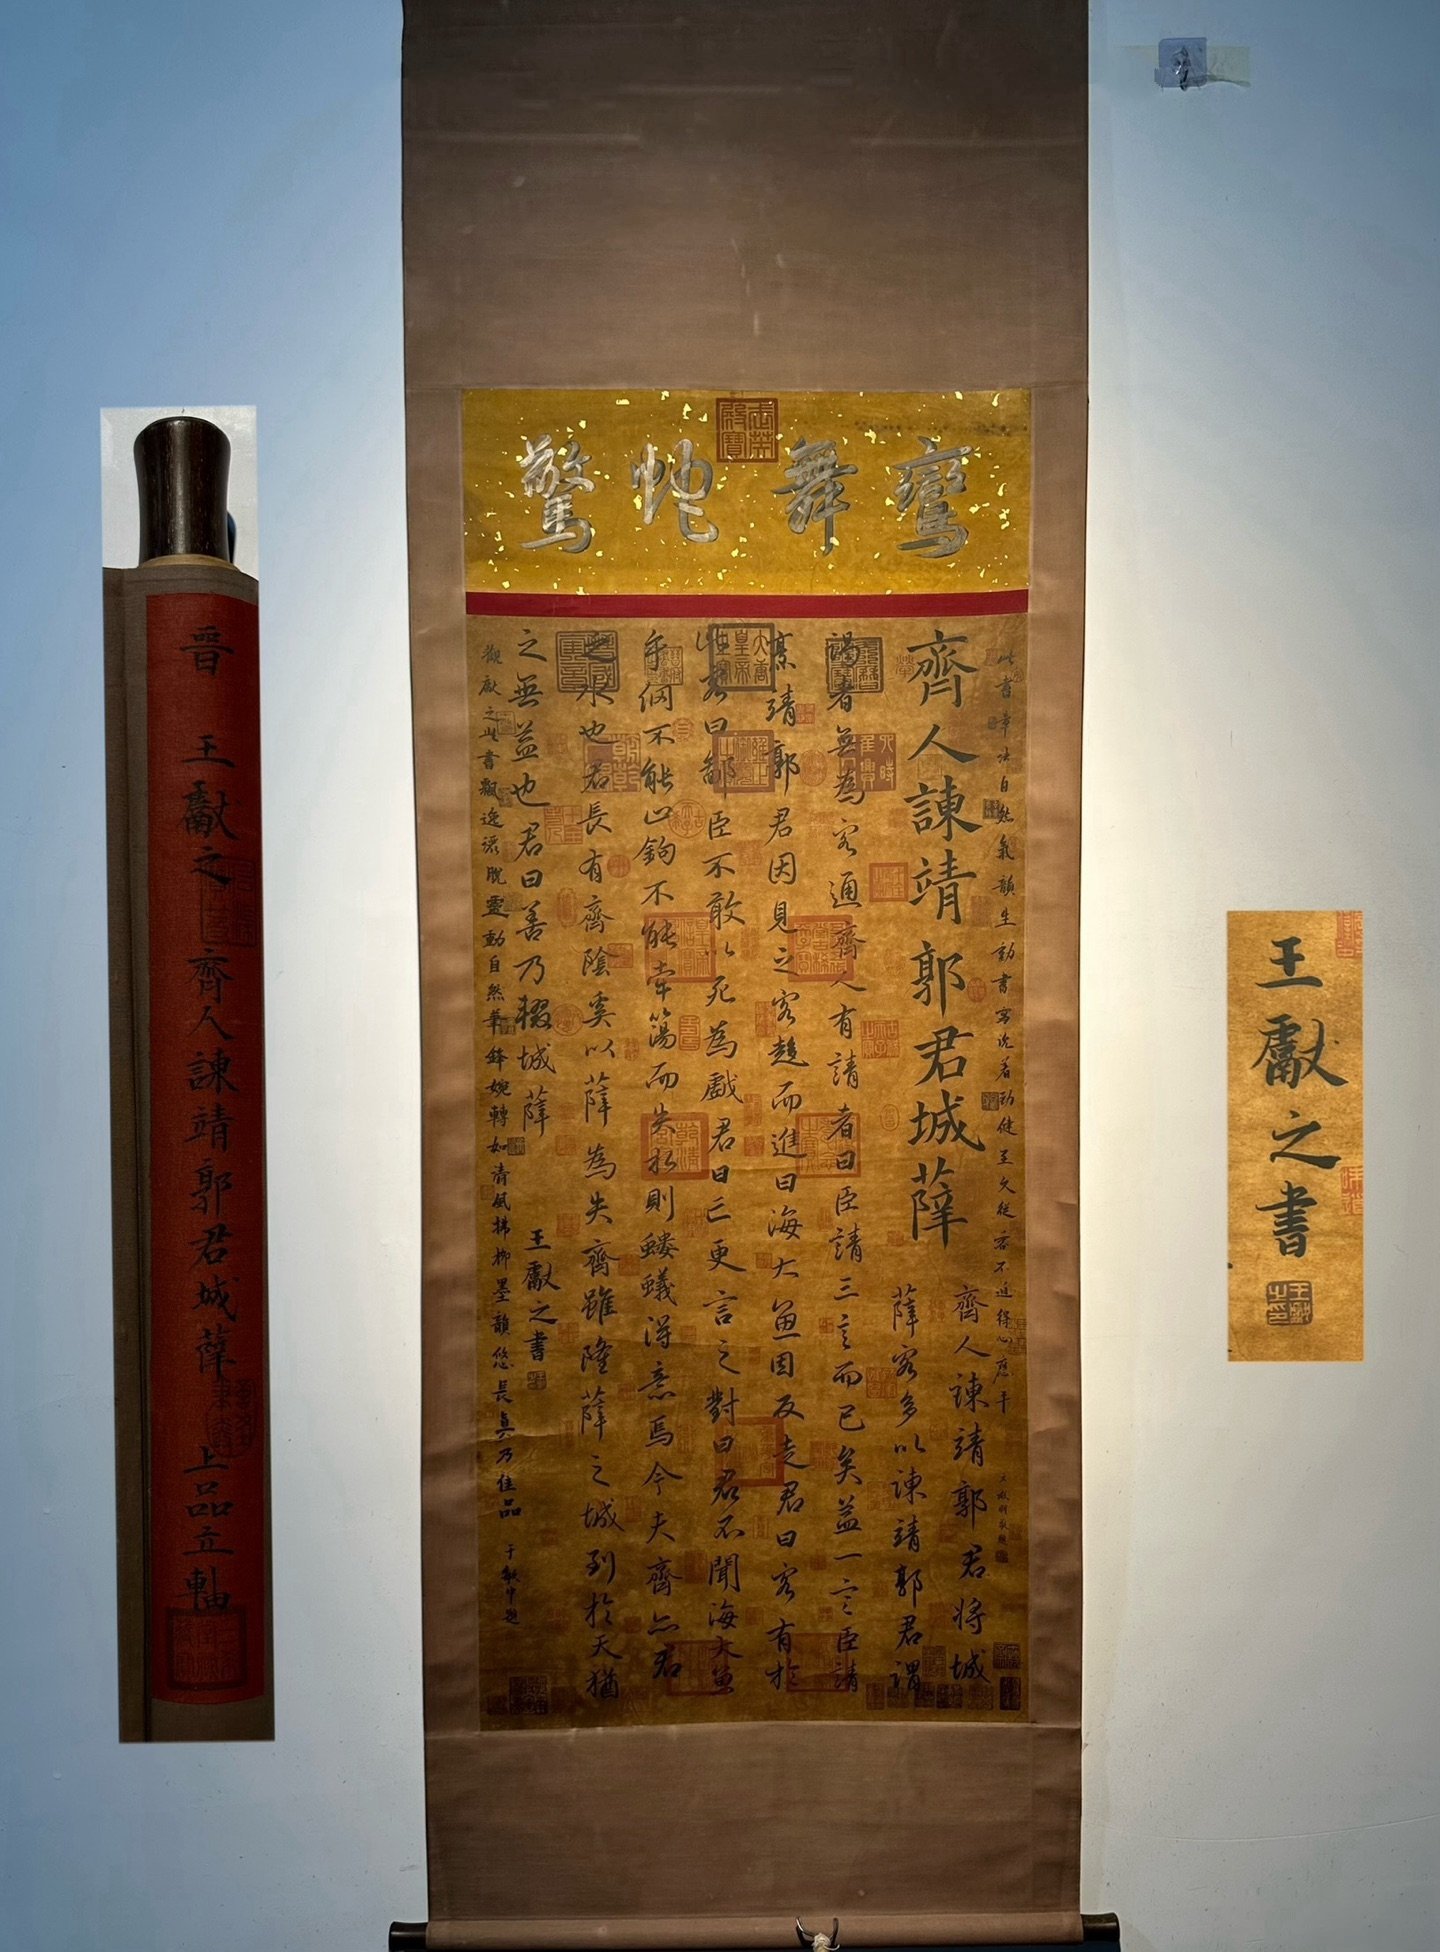 鸞舞蛇驚
此書章法自然氣韻生動書寫沈著勁健至文從容不迫得心應手
齊人諫靖郭君城薛
齊人諫靖郭君將城
薛客多以諫靖郭君謂
謁者無為客通齊人有請者曰臣請三言而已矣益一言臣請
烹靖郭君因見之客趨而進曰海大魚因反走君曰客有於
此客曰鄙臣不敢以死為戲君曰亡更言之對曰君不聞海大魚
乎網不能止鉤不能牽蕩而失水則螻蟻得意焉今夫齊亦君
之水也君長有齊陰奚以薛為失齊雖隆薛之城到於天猶
之無益也君曰善乃輟城薛
王獻之書
觀獻之此書飄逸灑脫靈動自然筆鋒婉轉如清風拂柳墨韻悠長真乃佳品 于敏中題
晉 王獻之 齊人諫靖郭君城薛 上品立軸
王獻之書